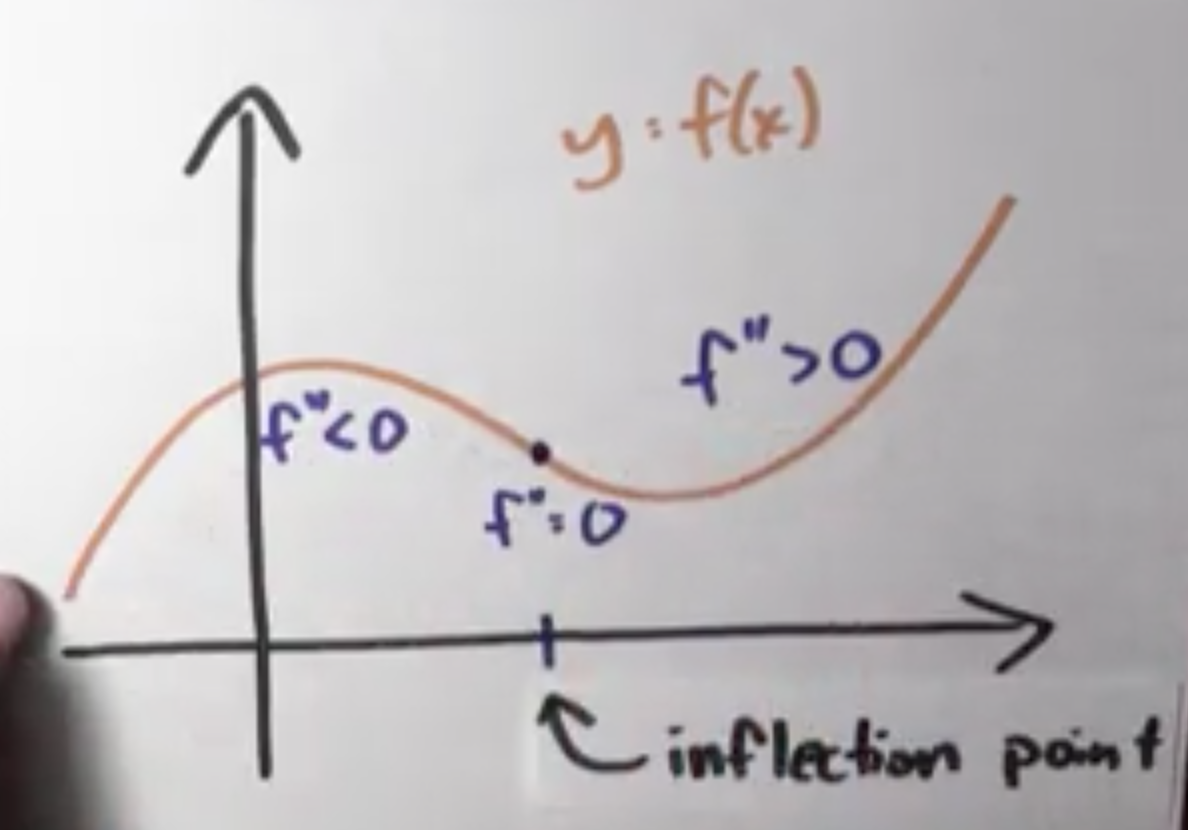 y = f(x)
f" > 0
f" < 0
f" = 0
inflection point